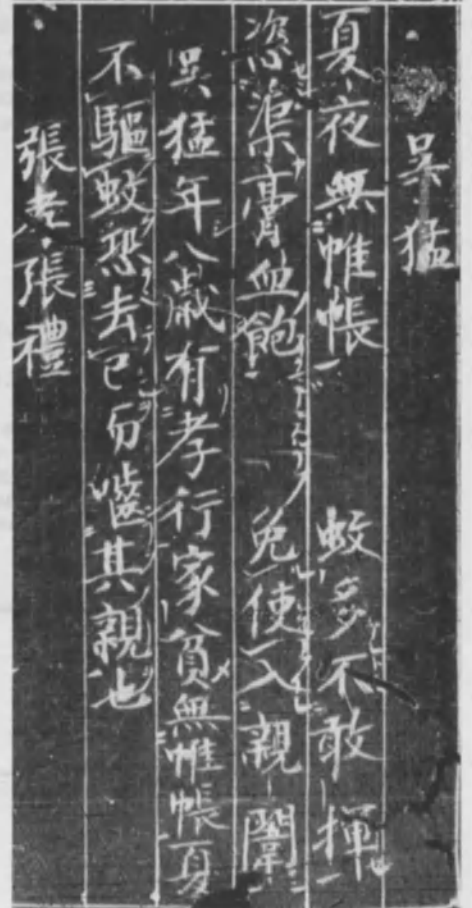 呉猛
夏夜無帷帳　蚊多不敢揮
恣渠膏血飽　免使入親闈
呉猛年八歳有孝行家貧無帷帳夏
不驅蚊恐去已而噬其親也
張孝張禮